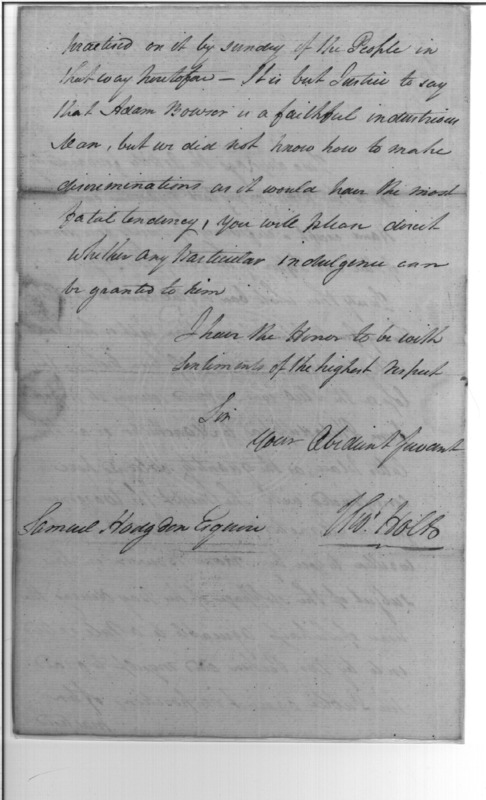 practised on it by sunday of the People in
that way heretofore — It is but Justice to say
that Adam Bowser is a faithful industrious
Man, but we did not know how to make
discriminations as it would have the most
fatal tendency, you will please direct
whether any Particular indulgence can
be granted to him
I have the Honor to be with
Sentiments of the highest respect
Sir
Your Obedient Servant
Samuel Hodgdon Esquire
Thos Holt